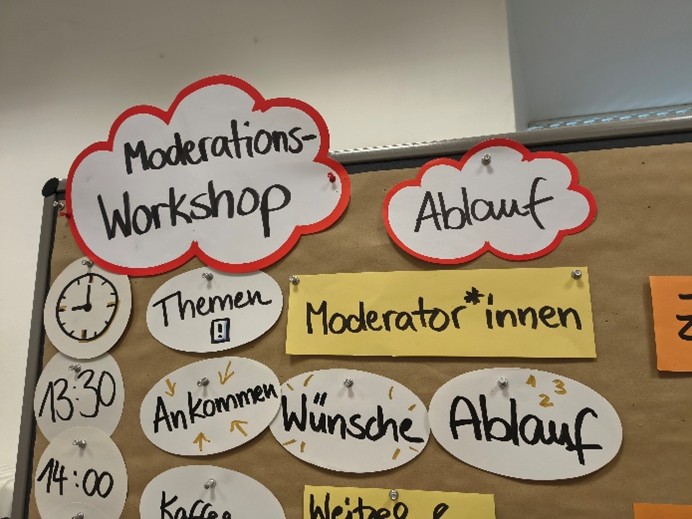 Moderations-
Workshop
Ablauf
Themen
!
Moderator*innen
13:30
Ankommen
Wünsche
1 2 3
Ablauf
14:00
Kaffee